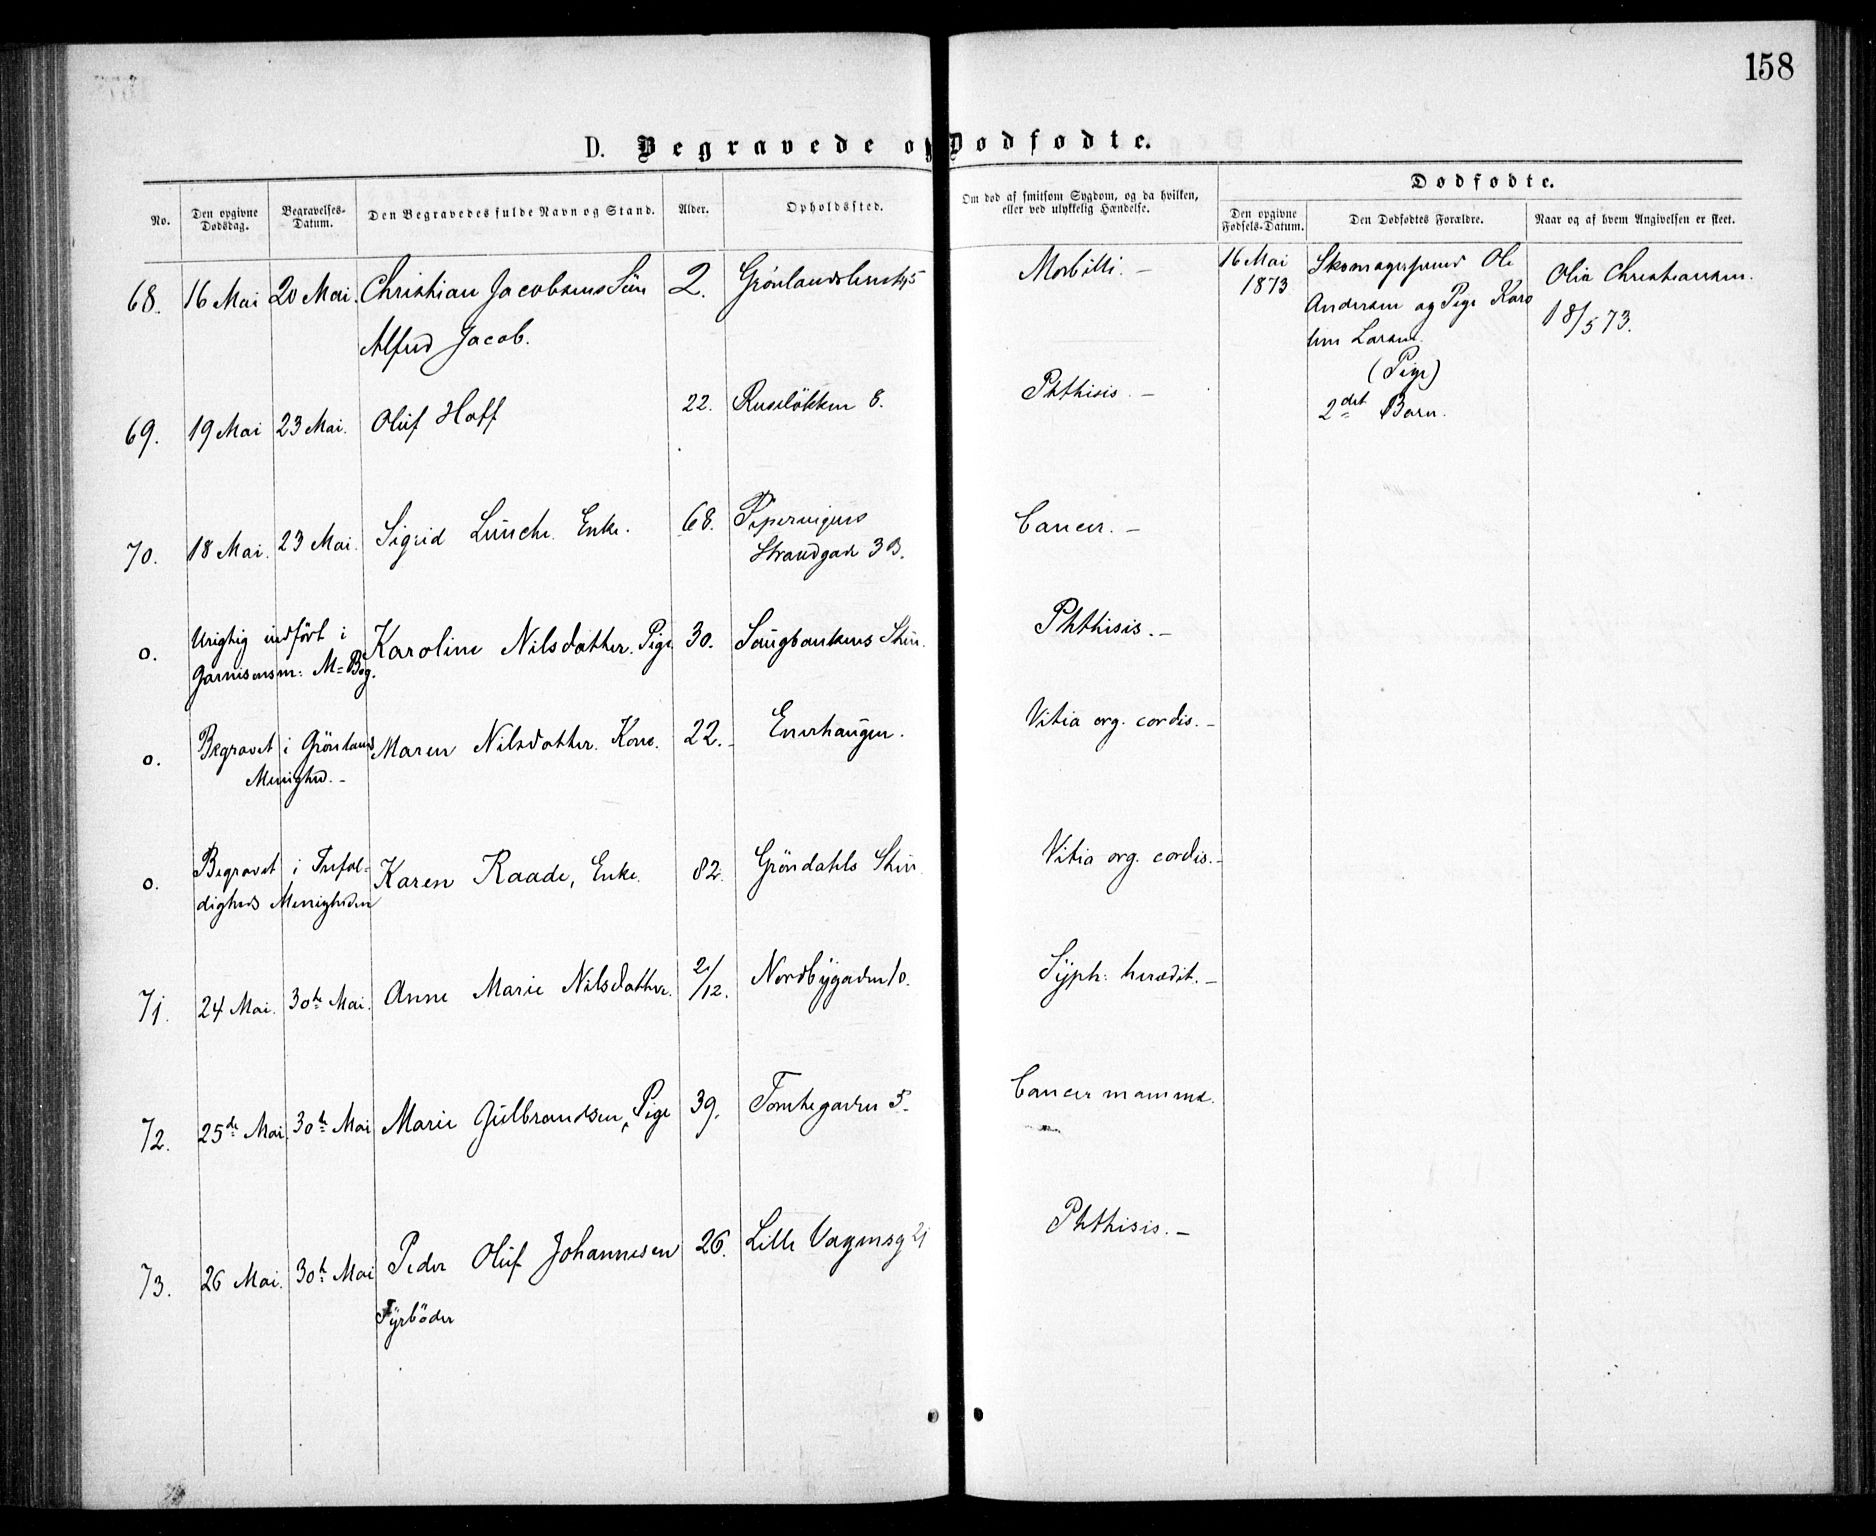 158
D. Begravede og Dødfødte.
No.
Den opgivne Dødsdag.
Begravelses-Datum.
Den Begravedes fulde Navn og Stand.
Alder.
Opholdssted.
Om død af smitsom Sygdom, og da hvilken,
eller ved ulykkelig Hændelse.
Dødfødte.
Den opgivne Fødsels-Datum.
Den Dødfødtes Forældre.
Naar og af hvem Angivelsen er skeet.
68. 16 Mai 20 Mai. Christian Jacobsens Søn 2. Morbilli. –
Alfred Jacob.
16 Mai
1873
Ole
Andersen og Pige Karo
line Larsen.
(Pige)
2det Barn.
Olia Christiansen.
18/5 73.
69. 19 Mai 23 Mai. Oluf Hoff 22. Ruseløkken 8. Phthisis. –
70. 18 Mai. 23 Mai. Sigrid Enke. 68. Pipervigens Cancer. –
Strandgade 3 B.
o. Urigtig indført i Karoline Nilsdatter. Pige 30. Saugbankens Phthisis. –
Garnisonsm: M= Bog.
o. Begravet i Grønlands Maren Nilsdatter. Kone. 22. – Enerhaugen. Vitia org. cordis. –
Menighed. –
o. Begravet i Trefol- Karen Raade, Enke. 82. Grøndahls Vitia org. cordis. –
digheds Menigheden
71. 24 Mai. 30te Mai. Anne Marie Nilsdatter. 2/12. Nordbygaden 10. Syph: heredit. –
72. 25de Mai. 30te Mai Marie Gulbrandsen, Pige 39. Tomtegaden 5. Cancer mammæ.
73. 26 Mai. 30te Mai Peder Oluf Johannesen 26. Lille Vognmsg 21 Phthisis. –
Fyrbøder